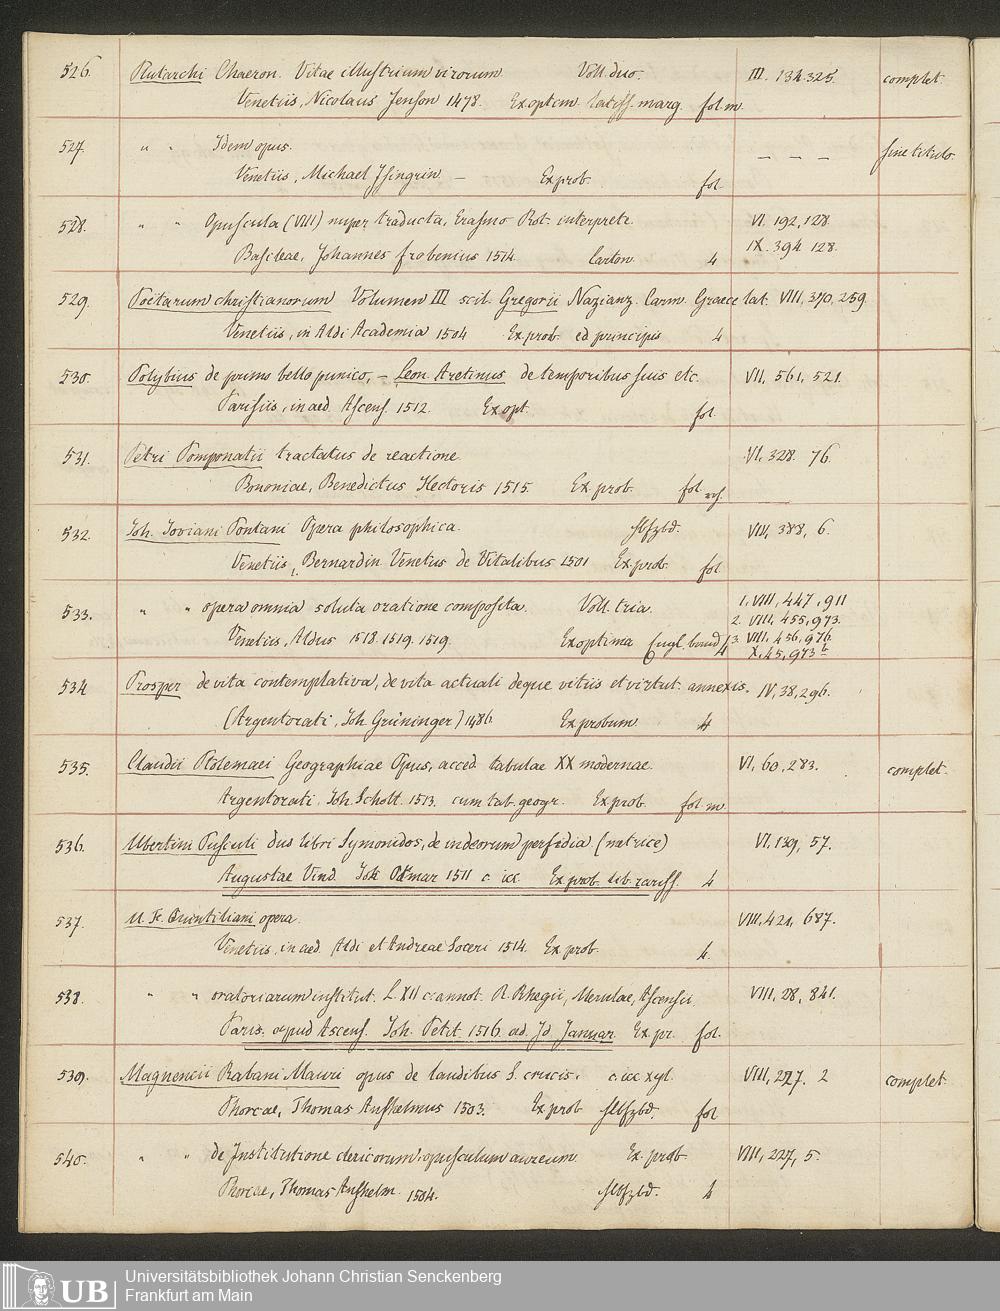 526. Plutarchi Chaeron. Vitae illustrium virorum. Voll. duo. III. 134.325. complet.
Venetiis, Nicolaus Jenson 1478. Ex. optem. latiss. marg. fol. m.
527. " " Idem opus. – – – sine titulo.
Venetiis, Michael Isingrin – Ex prob. fol.
528. " " Opuscula (VIII) nuper traducta, Erasmo Rot. interprete. VI. 192, 128.
IX. 394 128.
Basileae, Johannes Frobenius 1514. Carton. 4
529. Poetarum christianorum Volumen III scil. Gregorii Nazianz. Carm. Graece lat. VIII, 370, 259.
Venetiis, in Aldi Academia 1504 Ex. prob. ed principis 4
530. Polybius de primo bello punico, – Leon. Aretinus de temporibus suis etc. VII, 561, 521.
Parisiis, in aed. Ascens. 1512. Ex opt. fol.
531. Petri Pomponatii tractatus de reactione VI. 328. 76.
Bononiae, Benedictus Hectoris 1515. Ex. prob. fol.
532. Joh. Joviani Pontani Opera philosophica. Hbfzbd. VIII, 388, 6.
Venetiis, Bernardin Venetus de Vitalibus 1501 Ex. prob. fol.
533. " " opera omnia soluta oratione composita. Voll. tria. 1. VIII, 447, 911
2. VIII, 455, 973.
Venetiis, Aldus 1518. 1519. 1519. Ex optima Engl. band 4 3. VIII, 456, 976.
X, 45, 973 b
534 Prosper de vita contemplativa, de vita actuali deque vitiis et virtut. annexis. IV, 38, 296.
(Argentorati, Joh Grüninger) 1486. Ex probum. 4
535. Claudii Ptolemaei Geographiae Opus, acced tabulae XX modernae. VI, 60, 283. complet.
Argentorati, Joh. Schott. 1513. cum tab. geogr. Ex prob. fol. m.
536. Ubertini Pusculi duo libri Symonidos, de iudeorum perfidia (metrice) VI, 139, 57.
Augustae Vind. Joh Otmar 1511 c. icc. Ex prob. lib. rariss. 4
537. M. F. Quintiliani opera. VIII, 421, 687.
Venetiis, in aed. Aldi et Andreae Soceri 1514. Ex prob. 4.
538. " " oratoriarum institut. L. XII c. annot. R. Rhegii, Merulae, Ascensii. VIII, 28, 841.
Paris. apud Ascens. Joh. Petit. 1516. ad. Id Januar. Ex. pr. fol.
539. Magnencii Rabani Mauri opus de laudibus S. crucis. c. icc xyl. VIII, 227. 2 complet.
Phorcae, Thomas Anshelmus 1503. Ex. prob Hbfzbd. fol
540. " " de Institutione clericorum opusculum aureum. Ex. prob VIII, 227, 5.
Phorcae, Thomas Anshelm. 1504. Hbfzbd. 4
UB
Universitätsbibliothek Johann Christian Senckenberg
Frankfurt am Main